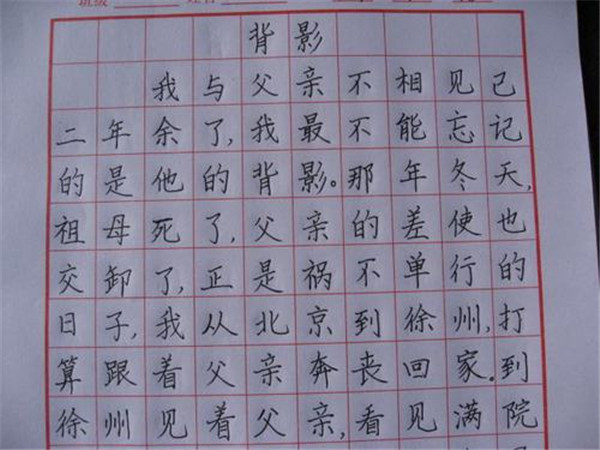 背影
我与父亲不相见己
二年余了,我最不能忘记
的是他的背影。那年冬天,
祖母死了,父亲的差使也
交卸了,正是祸不单行的
日子,我从北京到徐州,打
算跟着父亲奔丧回家。到
徐州见着父亲,看见满院